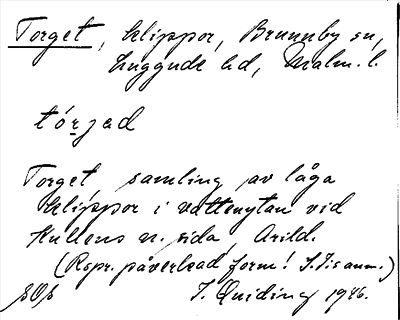 Torget, klippor, Brunnby sn,
Luggude hd, Malm. l.
tórzad
Torget, samling av låga
klippor i vattenytan vid
Kullens n. sida, Arild.
(Rspr. påverkad form! S.I:s anm.)
I. Quiding 1946.